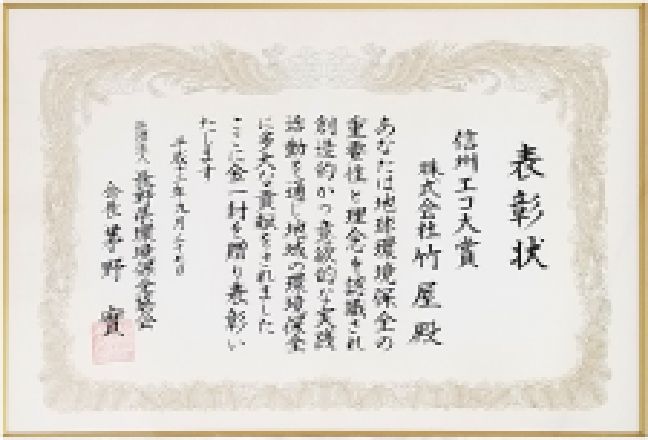 表彰状
信州エコ大賞
株式会社竹屋殿
あなたは地球環境保全の
重要性と理念を認識され
創造的かつ意欲的な実践
活動を通し地域の環境保全
に多大な貢献をされました
ここに金一封を贈り表彰い
たします
平成十二年九月二十七日
社団法人 長野県環境保全協会
会長 茅野 實